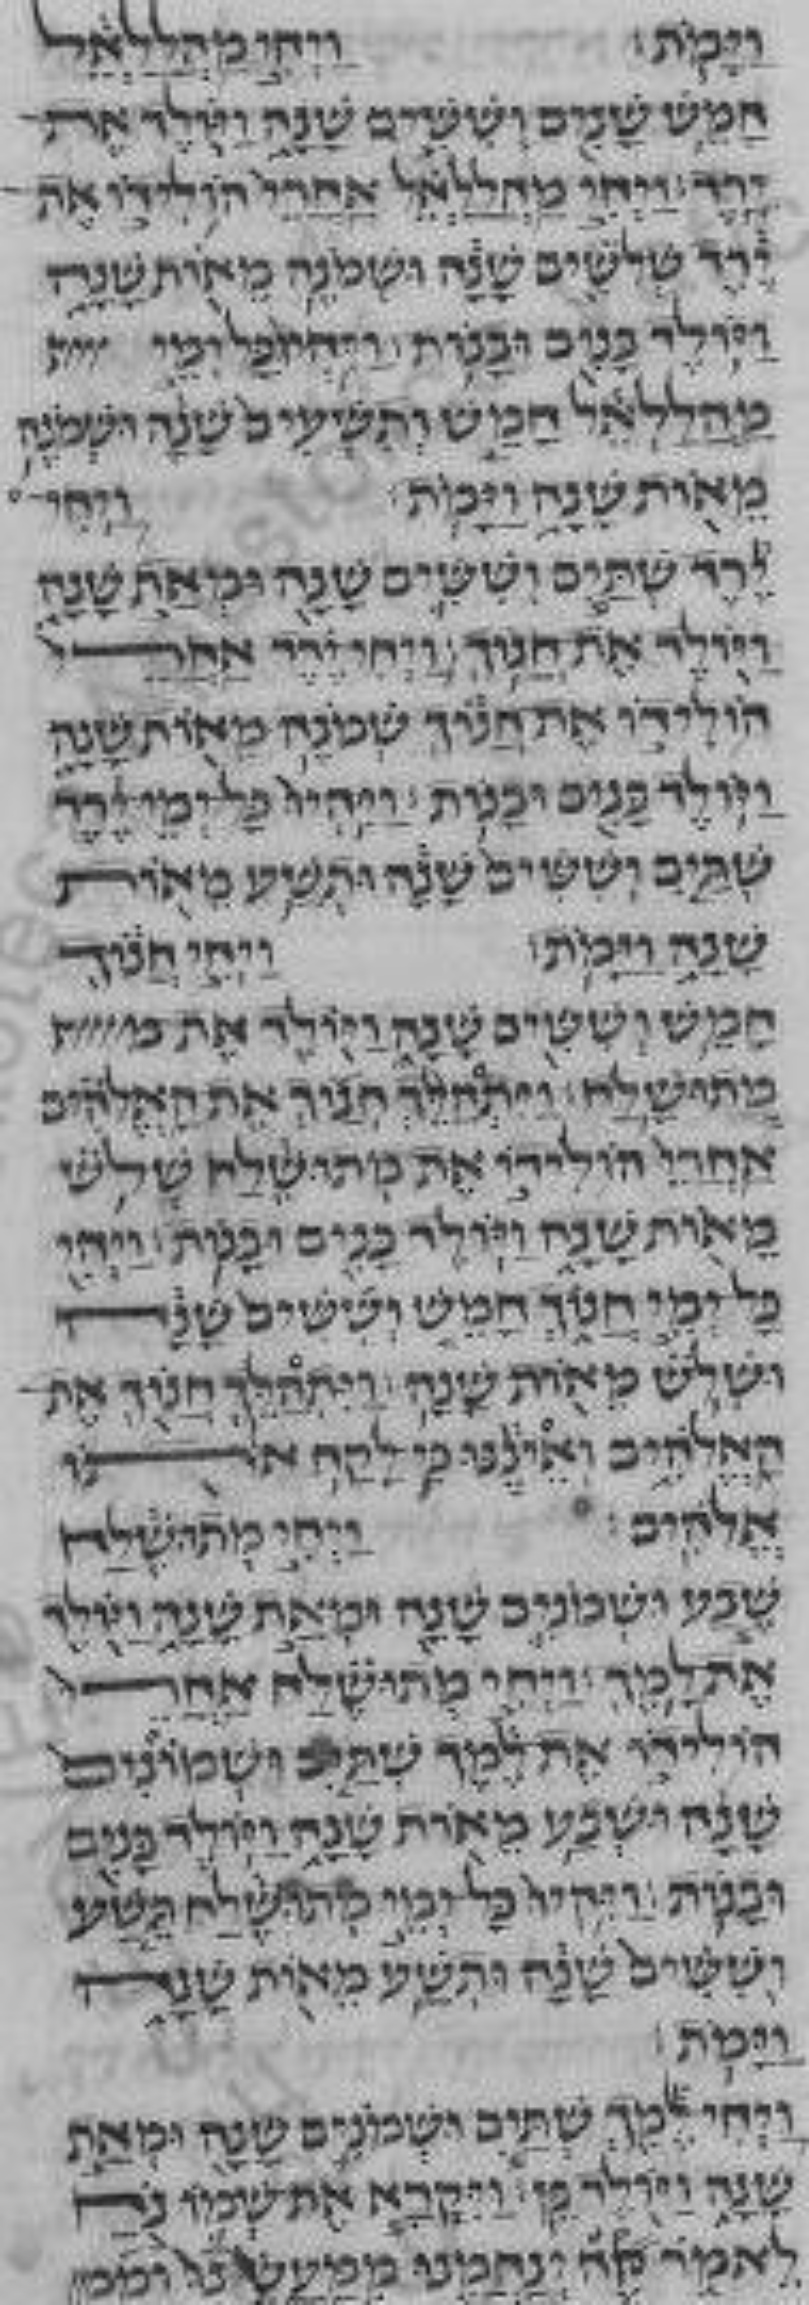 וַיָּמֹת׃ וַיְחִי מַהֲלַלְאֵל
חָמֵשׁ שָׁנִים וְשִׁשִּׁים שָׁנָה וַיּוֹלֶד אֶת
יָרֶד׃ וַיְחִי מַהֲלַלְאֵל אַחֲרֵי הוֹלִידוֹ אֶת
יֶרֶד שְׁלֹשִׁים שָׁנָה וּשְׁמֹנֶה מֵאוֹת שָׁנָה
וַיּוֹלֶד בָּנִים וּבָנוֹת׃ וַיִּהְיוּ כָּל יְמֵי
מַהֲלַלְאֵל חָמֵשׁ וְתִשְׁעִים שָׁנָה וּשְׁמֹנֶה
מֵאוֹת שָׁנָה וַיָּמֹת׃ וַיְחִי
יֶרֶד שְׁתַּיִם וְשִׁשִּׁים שָׁנָה וּמְאַת שָׁנָה
וַיּוֹלֶד אֶת חֲנוֹךְ׃ וַיְחִי יֶרֶד אַחֲרֵי
הוֹלִידוֹ אֶת חֲנוֹךְ שְׁמֹנֶה מֵאוֹת שָׁנָה
וַיּוֹלֶד בָּנִים וּבָנוֹת׃ וַיִּהְיוּ כָּל יְמֵי יֶרֶד
שְׁתַּיִם וְשִׁשִּׁים שָׁנָה וּתְשַׁע מֵאוֹת
שָׁנָה וַיָּמֹת׃ וַיְחִי חֲנוֹךְ
חָמֵשׁ וְשִׁשִּׁים שָׁנָה וַיּוֹלֶד אֶת
מְתוּשָׁלַח׃ וַיִּתְהַלֵּךְ חֲנוֹךְ אֶת הָאֱלֹהִים
אַחֲרֵי הוֹלִידוֹ אֶת מְתוּשֶׁלַח שְׁלֹשׁ
מֵאוֹת שָׁנָה וַיּוֹלֶד בָּנִים וּבָנוֹת׃ וַיְהִי
כָּל יְמֵי חֲנוֹךְ חָמֵשׁ וְשִׁשִּׁים שָׁנָה
וּשְׁלֹשׁ מֵאוֹת שָׁנָה׃ וַיִּתְהַלֵּךְ חֲנוֹךְ אֶת
הָאֱלֹהִים וְאֵינֶנּוּ כִּי לָקַח אֹתוֹ
אֱלֹהִים׃ וַיְחִי מְתוּשֶׁלַח
שֶׁבַע וּשְׁמוֹנִים שָׁנָה וּמְאַת שָׁנָה וַיּוֹלֶד
אֶת לָמֶךְ׃ וַיְחִי מְתוּשֶׁלַח אַחֲרֵי
הוֹלִידוֹ אֶת לֶמֶךְ שְׁתַּיִם וּשְׁמוֹנִים
שָׁנָה וּשְׁבַע מֵאוֹת שָׁנָה וַיּוֹלֶד בָּנִים
וּבָנוֹת׃ וַיִּהְיוּ כָּל יְמֵי מְתוּשֶׁלַח תֵּשַׁע
וְשִׁשִּׁים שָׁנָה וּתְשַׁע מֵאוֹת שָׁנָה
וַיָּמֹת׃
וַיְחִי לֶמֶךְ שְׁתַּיִם וּשְׁמוֹנִים שָׁנָה וּמְאַת
שָׁנָה וַיּוֹלֶד בֵּן׃ וַיִּקְרָא אֶת שְׁמוֹ נֹחַ
לֵאמֹר זֶה יְנַחֲמֵנוּ מִמַּעֲשֵׂנוּ